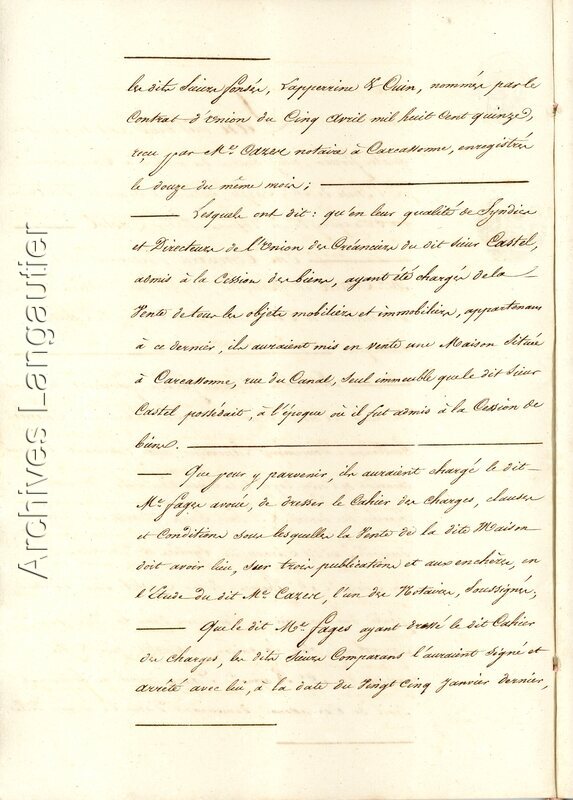 les dits Sieurs Sonsée, Lapperrine & Ouin, nommés par le
Contrat d'Union du Cinq Avril mil huit Cent quinze,
reçu par Me. Cazese notaire à Carcassonne, enregistrée
le douze du même mois;
Lesquels ont dit: qu'en leur qualité de Syndics
et Directeurs de l'Union des Créanciers du dit Sieur Castel,
admis à la Cession des biens, ayant été chargés de la
Vente de tous les objets mobiliers et immobiliers, appartenans
à ce dernier, ils auraient mis en vente une Maison située
à Carcassonne, rue du Canal, seul immeuble que le dit Sieur
Castel possédait, à l'époque où il fut admis à la Cession de
biens.
Que pour y parvenir, ils auraient chargé le dit
Me. Fages avoué, de dresser le Cahier des Charges, clauses
et Conditions sous lesquelles la Vente de la dite Maison
doit avoir lieu, sur trois publications et aux enchères, en
l'Etude du dit Me. Cazese, l'un des Notaires, Soussignés,
Que le dit Me. Fages ayant dressé le dit Cahier
des charges, les dits Sieurs Comparans l'auraient signé et
arrêté avec lui, à la date du Vingt Cinq Janvier dernier,
Archives Langautier